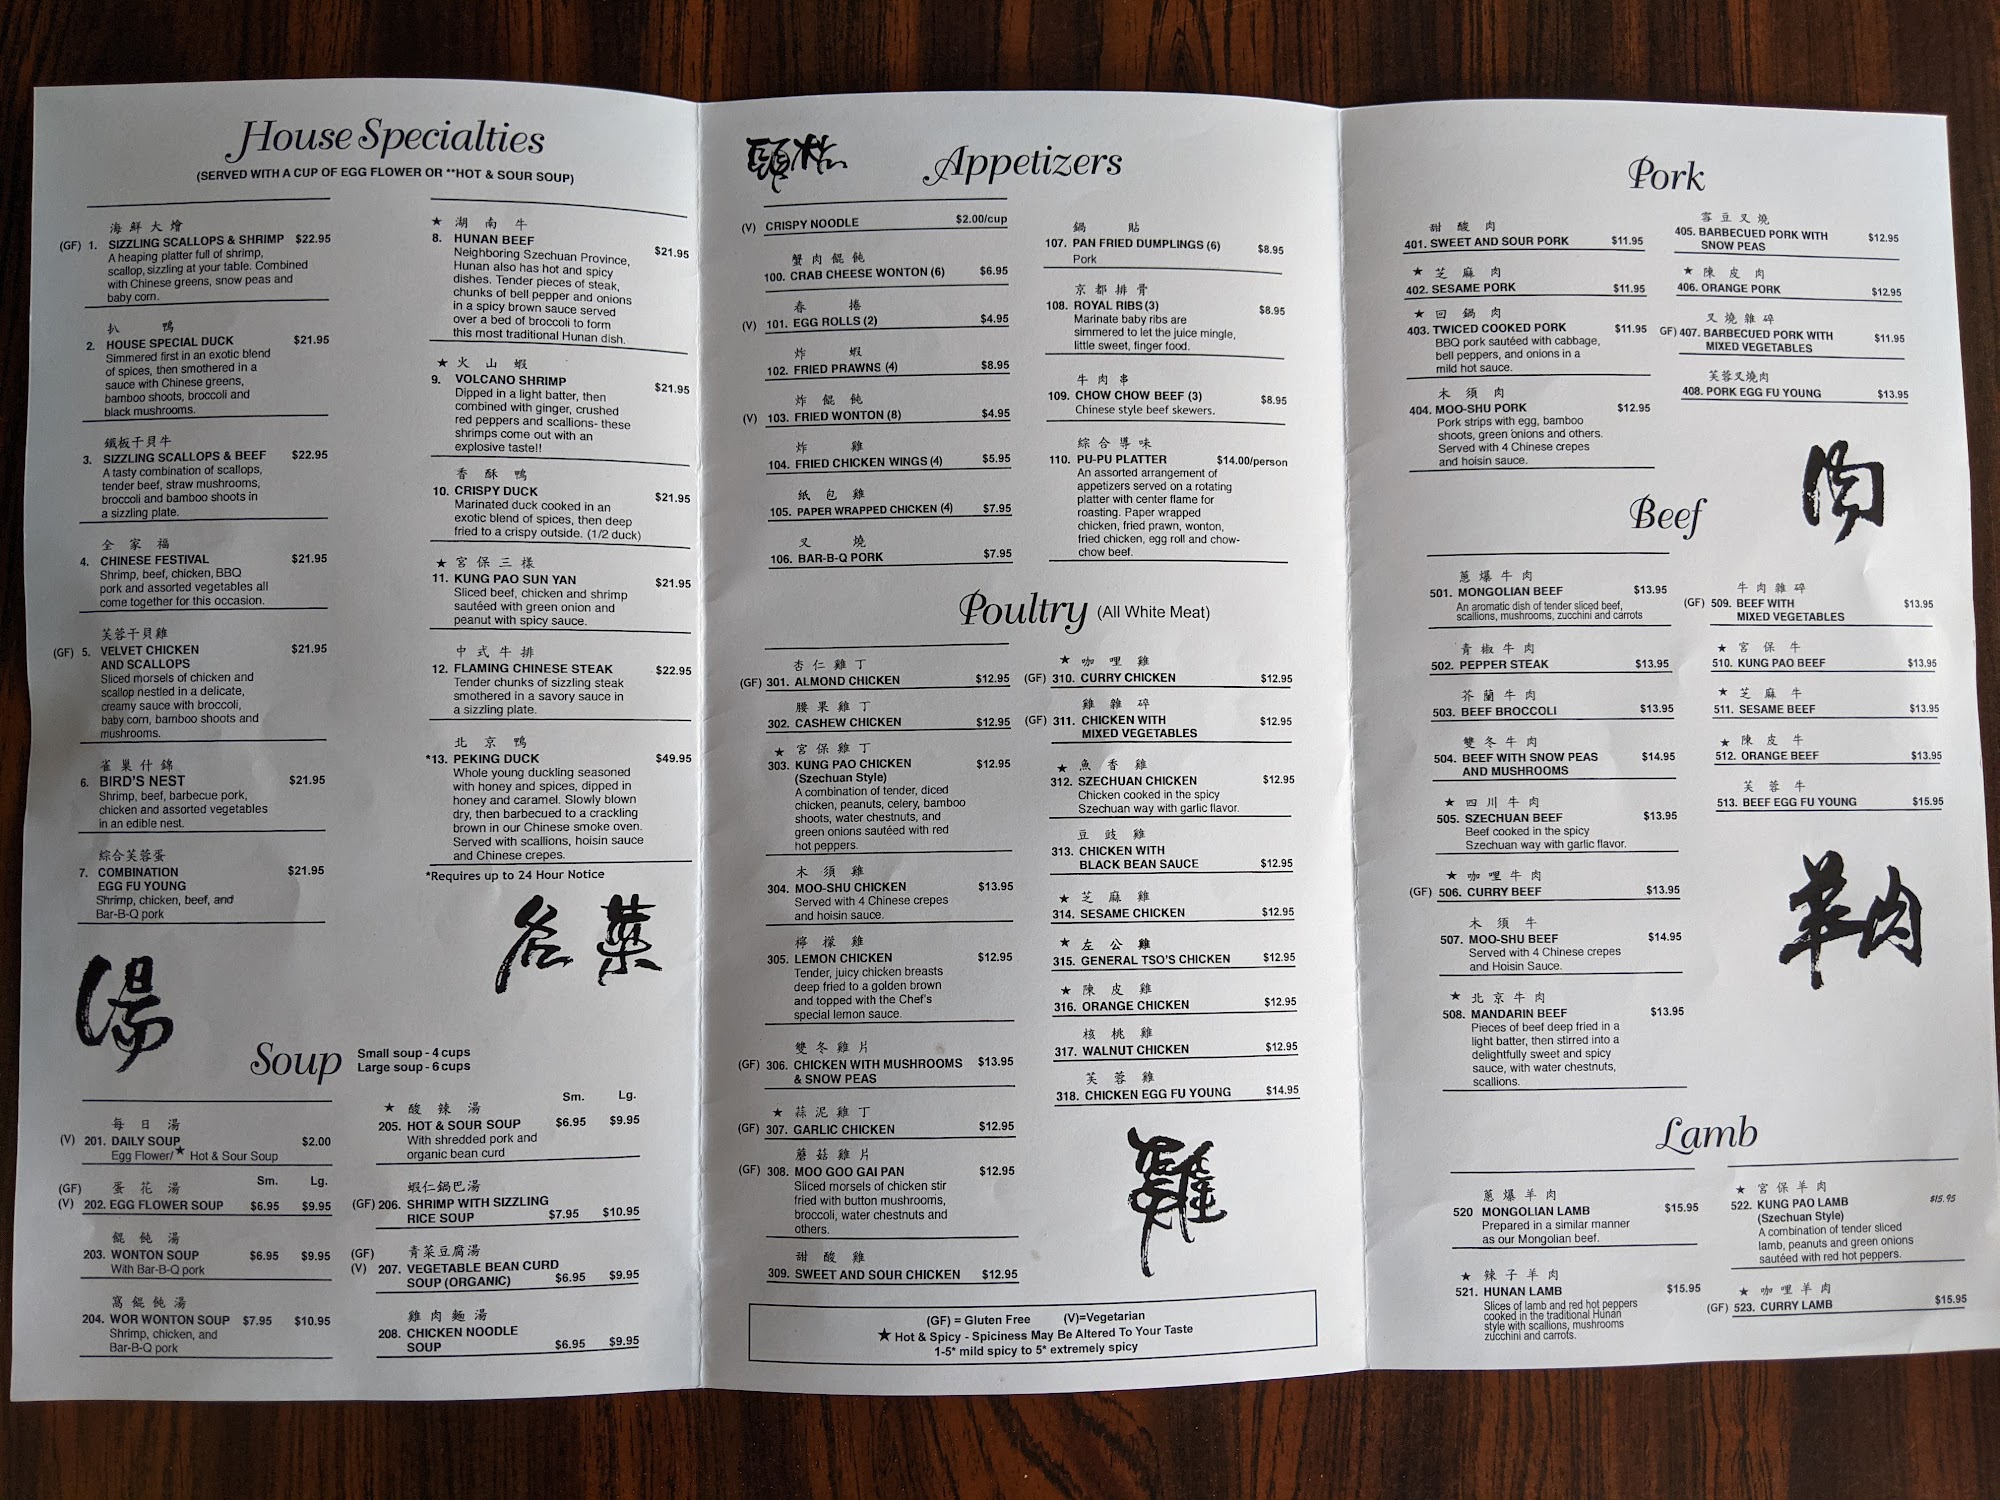 House Specialties
(SERVED WITH A CUP OF EGG FLOWER OR **HOT & SOUR SOUP)
海鮮大燴
(GF) 1. SIZZLING SCALLOPS & SHRIMP $22.95
A heaping platter full of shrimp,
scallop, sizzling at your table. Combined
with Chinese greens, snow peas and
baby corn.
扒鴨
2. HOUSE SPECIAL DUCK $21.95
Simmered first in an exotic blend
of spices, then smothered in a
sauce with Chinese greens,
bamboo shoots, broccoli and
black mushrooms.
鐵板干貝牛
3. SIZZLING SCALLOPS & BEEF $22.95
A tasty combination of scallops,
tender beef, straw mushrooms,
broccoli and bamboo shoots in
a sizzling plate.
全家福
4. CHINESE FESTIVAL $21.95
Shrimp, beef, chicken, BBQ
pork and assorted vegetables all
come together for this occasion.
芙蓉干貝雞
(GF) 5. VELVET CHICKEN $21.95
AND SCALLOPS
Sliced morsels of chicken and
scallop nestled in a delicate,
creamy sauce with broccoli,
baby corn, bamboo shoots and
mushrooms.
雀巢什錦
6. BIRD'S NEST $21.95
Shrimp, beef, barbecue pork,
chicken and assorted vegetables
in an edible nest.
綜合芙蓉蛋
7. COMBINATION $21.95
EGG FU YOUNG
Shrimp, chicken, beef, and
Bar-B-Q pork
★ 湖南牛
8. HUNAN BEEF $21.95
Neighboring Szechuan Province,
Hunan also has hot and spicy
dishes. Tender pieces of steak,
chunks of bell pepper and onions
in a spicy brown sauce served
over a bed of broccoli to form
this most traditional Hunan dish.
★ 火山蝦
9. VOLCANO SHRIMP $21.95
Dipped in a light batter, then
combined with ginger, crushed
red peppers and scallions- these
shrimps come out with an
explosive taste!!
香酥鴨
10. CRISPY DUCK $21.95
Marinated duck cooked in an
exotic blend of spices, then deep
fried to a crispy outside. (1/2 duck)
★ 宮保三樣
11. KUNG PAO SUN YAN $21.95
Sliced beef, chicken and shrimp
sautéed with green onion and
peanut with spicy sauce.
中式牛排
12. FLAMING CHINESE STEAK $22.95
Tender chunks of sizzling steak
smothered in a savory sauce in
a sizzling plate.
北京鴨
*13. PEKING DUCK $49.95
Whole young duckling seasoned
with honey and spices, dipped in
honey and caramel. Slowly blown
dry, then barbecued to a crackling
brown in our Chinese smoke oven.
Served with scallions, hoisin sauce
and Chinese crepes.
*Requires up to 24 Hour Notice
名菜
湯
Soup
Small soup - 4 cups
Large soup - 6 cups
每日湯
(V) 201. DAILY SOUP $2.00
Egg Flower/★ Hot & Sour Soup
Sm. Lg.
(GF) 蛋花湯
(V) 202. EGG FLOWER SOUP $6.95 $9.95
餛飩湯
203. WONTON SOUP $6.95 $9.95
With Bar-B-Q pork
窩餛飩湯
204. WOR WONTON SOUP $7.95 $10.95
Shrimp, chicken, and
Bar-B-Q pork
Sm. Lg.
★ 酸辣湯
205. HOT & SOUR SOUP $6.95 $9.95
With shredded pork and
organic bean curd
蝦仁鍋巴湯
(GF) 206. SHRIMP WITH SIZZLING
RICE SOUP $7.95 $10.95
(GF) 青菜豆腐湯
(V) 207. VEGETABLE BEAN CURD
SOUP (ORGANIC) $6.95 $9.95
雞肉麵湯
208. CHICKEN NOODLE
SOUP $6.95 $9.95
Appetizers
(V) CRISPY NOODLE $2.00/cup
蟹肉餛飩
100. CRAB CHEESE WONTON (6) $6.95
春捲
(V) 101. EGG ROLLS (2) $4.95
炸蝦
102. FRIED PRAWNS (4) $8.95
炸餛飩
(V) 103. FRIED WONTON (8) $4.95
炸雞
104. FRIED CHICKEN WINGS (4) $5.95
紙包雞
105. PAPER WRAPPED CHICKEN (4) $7.95
叉燒
106. BAR-B-Q PORK $7.95
鍋貼
107. PAN FRIED DUMPLINGS (6) $8.95
Pork
京都排骨
108. ROYAL RIBS (3) $8.95
Marinate baby ribs are
simmered to let the juice mingle,
little sweet, finger food.
牛肉串
109. CHOW CHOW BEEF (3) $8.95
Chinese style beef skewers.
綜合導味
110. PU-PU PLATTER $14.00/person
An assorted arrangement of
appetizers served on a rotating
platter with center flame for
roasting. Paper wrapped
chicken, fried prawn, wonton,
fried chicken, egg roll and chow-
chow beef.
Poultry (All White Meat)
杏仁雞丁
(GF) 301. ALMOND CHICKEN $12.95
腰果雞丁
302. CASHEW CHICKEN $12.95
★ 宮保雞丁
303. KUNG PAO CHICKEN $12.95
(Szechuan Style)
A combination of tender, diced
chicken, peanuts, celery, bamboo
shoots, water chestnuts, and
green onions sautéed with red
hot peppers.
木須雞
304. MOO-SHU CHICKEN $13.95
Served with 4 Chinese crepes
and hoisin sauce.
檸檬雞
305. LEMON CHICKEN $12.95
Tender, juicy chicken breasts
deep fried to a golden brown
and topped with the Chef's
special lemon sauce.
雙冬雞片
(GF) 306. CHICKEN WITH MUSHROOMS $13.95
& SNOW PEAS
★ 蒜泥雞丁
(GF) 307. GARLIC CHICKEN $12.95
蘑菇雞片
(GF) 308. MOO GOO GAI PAN $12.95
Sliced morsels of chicken stir
fried with button mushrooms,
broccoli, water chestnuts and
others.
甜酸雞
309. SWEET AND SOUR CHICKEN $12.95
★ 咖哩雞
(GF) 310. CURRY CHICKEN $12.95
雞雜碎
(GF) 311. CHICKEN WITH $12.95
MIXED VEGETABLES
★ 魚香雞
312. SZECHUAN CHICKEN $12.95
Chicken cooked in the spicy
Szechuan way with garlic flavor.
豆豉雞
313. CHICKEN WITH
BLACK BEAN SAUCE $12.95
★ 芝麻雞
314. SESAME CHICKEN $12.95
★ 左公雞
315. GENERAL TSO'S CHICKEN $12.95
★ 陳皮雞
316. ORANGE CHICKEN $12.95
核桃雞
317. WALNUT CHICKEN $12.95
芙蓉雞
318. CHICKEN EGG FU YOUNG $14.95
雞
(GF) = Gluten Free (V)=Vegetarian
★ Hot & Spicy - Spiciness May Be Altered To Your Taste
1-5* mild spicy to 5* extremely spicy
Pork
甜酸肉
401. SWEET AND SOUR PORK $11.95
★ 芝麻肉
402. SESAME PORK $11.95
★ 回鍋肉
403. TWICED COOKED PORK $11.95
BBQ pork sautéed with cabbage,
bell peppers, and onions in a
mild hot sauce.
木須肉
404. MOO-SHU PORK $12.95
Pork strips with egg, bamboo
shoots, green onions and others.
Served with 4 Chinese crepes
and hoisin sauce.
雪豆叉燒
405. BARBECUED PORK WITH $12.95
SNOW PEAS
★ 陳皮肉
406. ORANGE PORK $12.95
叉燒雜碎
GF) 407. BARBECUED PORK WITH $11.95
MIXED VEGETABLES
芙蓉叉燒肉
408. PORK EGG FU YOUNG $13.95
肉
Beef
蔥爆牛肉
501. MONGOLIAN BEEF $13.95
An aromatic dish of tender sliced beef,
scallions, mushrooms, zucchini and carrots
青椒牛肉
502. PEPPER STEAK $13.95
芥蘭牛肉
503. BEEF BROCCOLI $13.95
雙冬牛肉
504. BEEF WITH SNOW PEAS $14.95
AND MUSHROOMS
★ 四川牛肉
505. SZECHUAN BEEF $13.95
Beef cooked in the spicy
Szechuan way with garlic flavor.
★ 咖哩牛肉
(GF) 506. CURRY BEEF $13.95
木須牛
507. MOO-SHU BEEF $14.95
Served with 4 Chinese crepes
and Hoisin Sauce.
★ 北京牛肉
508. MANDARIN BEEF $13.95
Pieces of beef deep fried in a
light batter, then stirred into a
delightfully sweet and spicy
sauce, with water chestnuts,
scallions.
牛肉雜碎
(GF) 509. BEEF WITH $13.95
MIXED VEGETABLES
★ 宮保牛
510. KUNG PAO BEEF $13.95
★ 芝麻牛
511. SESAME BEEF $13.95
★ 陳皮牛
512. ORANGE BEEF $13.95
芙蓉牛
513. BEEF EGG FU YOUNG $15.95
羊肉
Lamb
蔥爆羊肉
520 MONGOLIAN LAMB $15.95
Prepared in a similar manner
as our Mongolian beef.
★ 辣子羊肉
521. HUNAN LAMB $15.95
Slices of lamb and red hot peppers
cooked in the traditional Hunan
style with scallions, mushrooms
zucchini and carrots.
★ 宮保羊肉
522. KUNG PAO LAMB $15.95
(Szechuan Style)
A combination of tender sliced
lamb, peanuts and green onions
sautéed with red hot peppers.
★ 咖哩羊肉
(GF) 523. CURRY LAMB $15.95